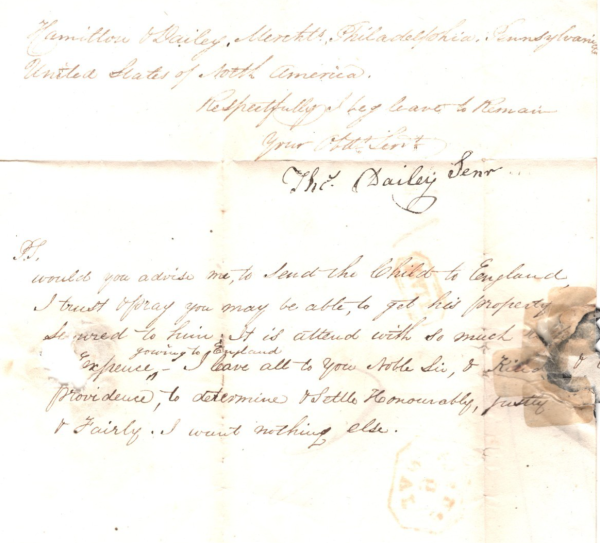 Hamilton & Dailey, Mercht.s, Philadelphia, Pennsylvania
United States of North America.
Respectfully I beg leave to Remain
Your Obdt. Servt.
Tho.s Dailey Senr
PS.
would you advise me, to Send the Child to England,
I trust & pray you may be able, to get his property
Secured to him. It is attend with so much
gowing to England
Expence, I leave all to You Noble Sir, & &
Providence, to determine & Settle Honourably, justly
& Fairly. I want nothing else.